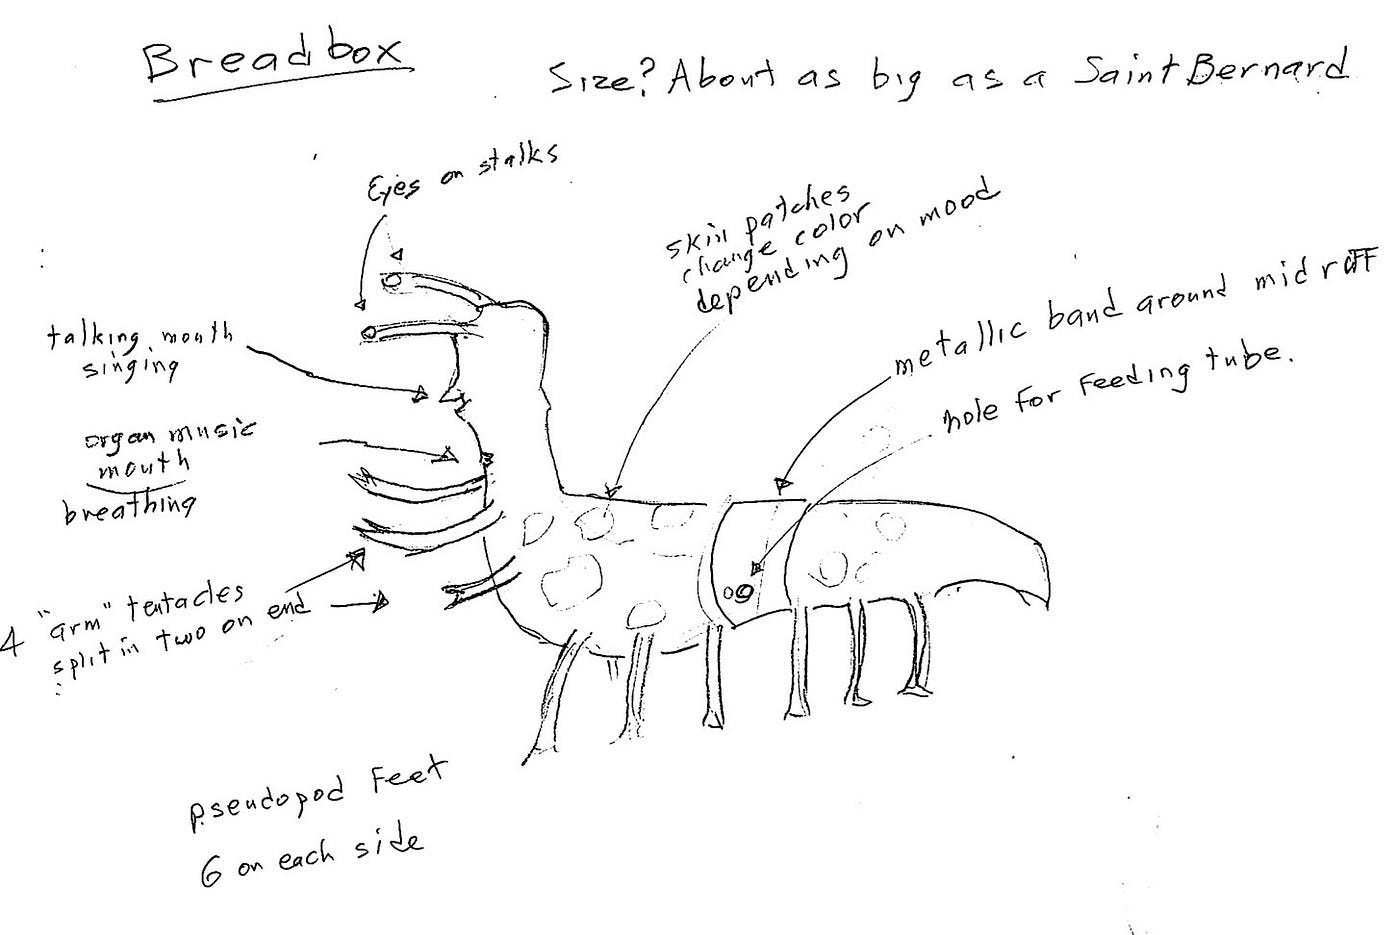 Breadbox
Size? About as big as a Saint Bernard
Eyes on stalks
skin patches
change color
depending on mood
metallic band around midruff
hole for feeding tube.
talking mouth
singing
organ music
mouth
breathing
4 "arm" tentacles
split in two on end
pseudopod Feet
6 on each side